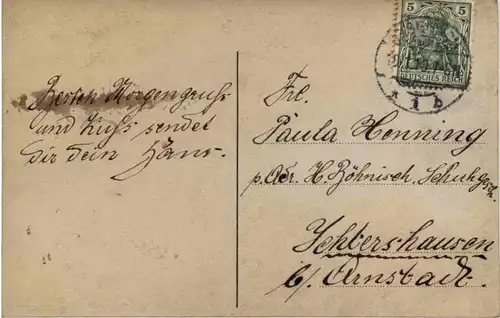 Besten Morgengruß
und Kuss sendet
Dir dein Hans.
5 5
DEUTSCHES REICH
* 1 b
Frl.
Paula Henning
p. Adr. H. Böhnisch. Schuhgesch.
Ichtershausen
b/ Arnstadt.